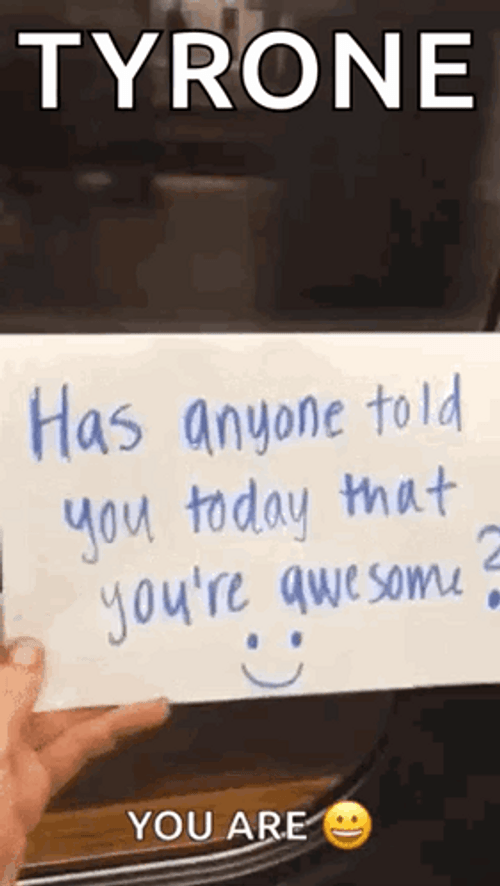 TYRONE
Has anyone told
you today that
you're awesome?
YOU ARE 😀